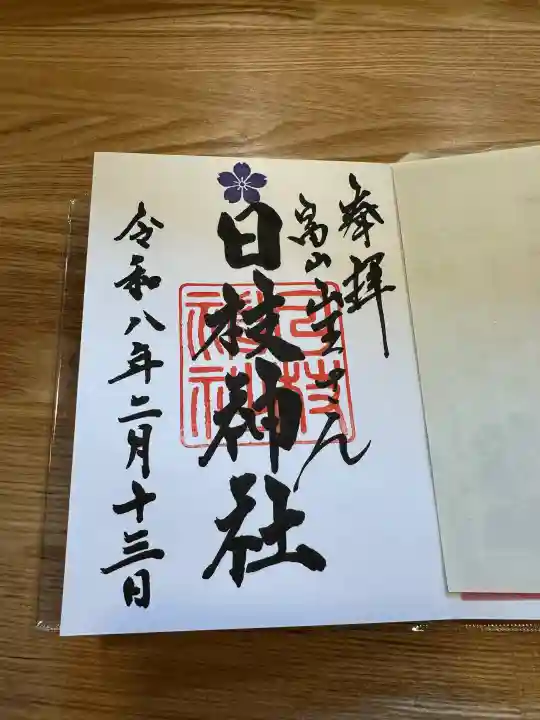 奉拝
富山山王さん
日枝神社
日枝神社
令和八年二月十三日